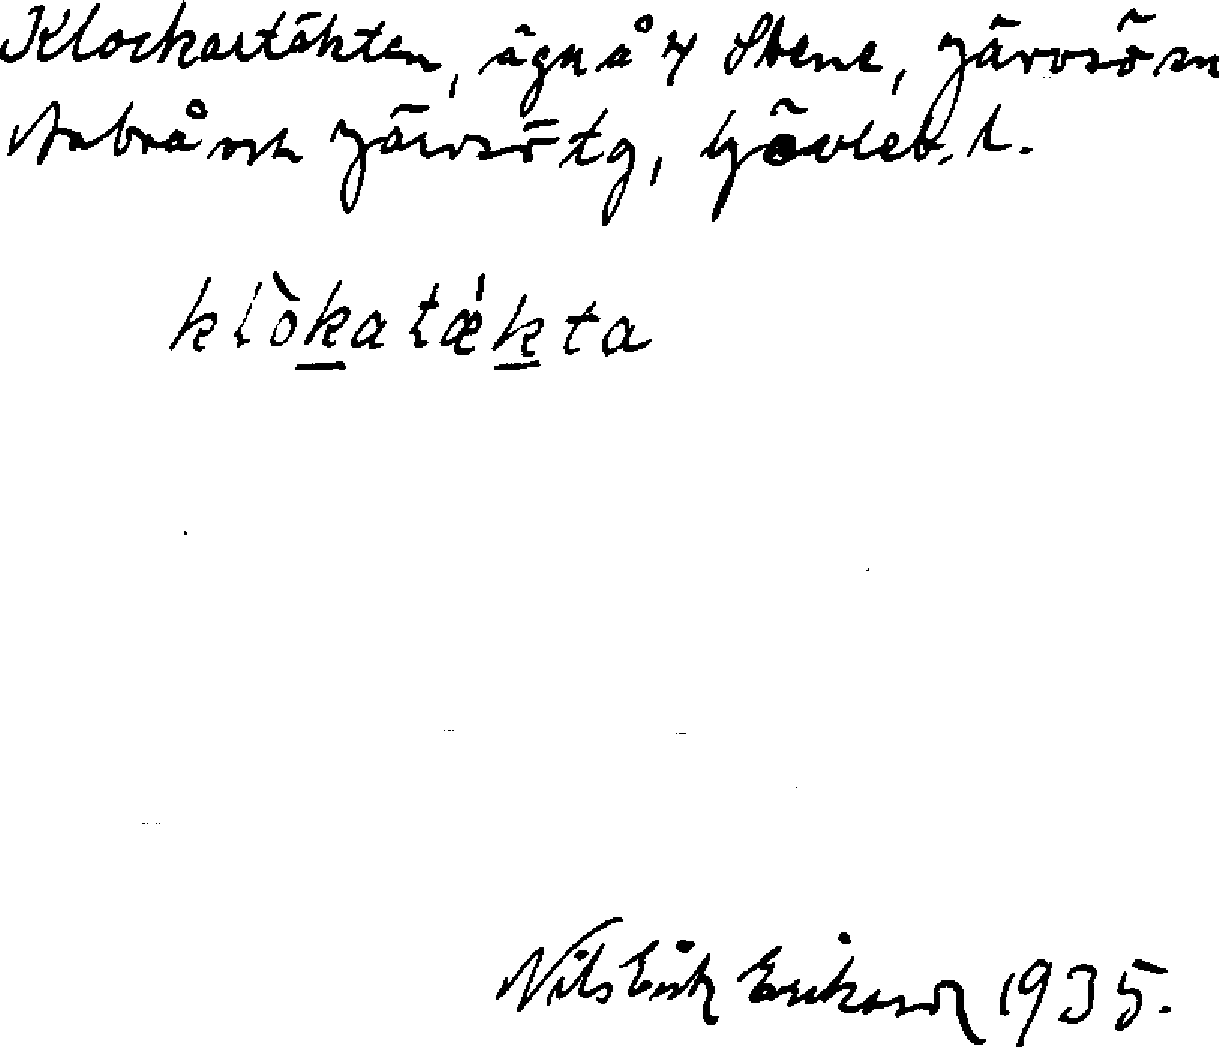 Klockartäkten, ägnå 4 Stene, Järvsö sn
Arbrå och Järvsö tg, Gävleb. l.
klòkatǽkta
Nils Erik Eriksson 1935.